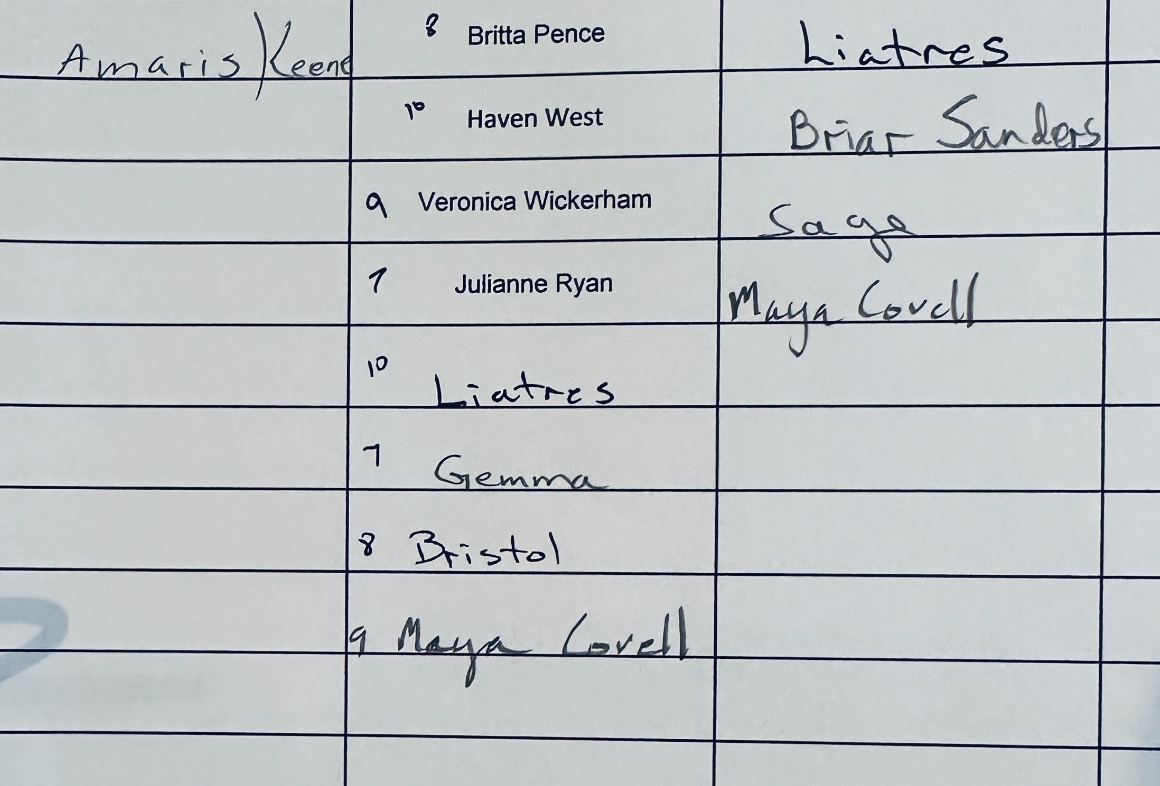 Amaris Keene 8 Britta Pence Liatres
10 Haven West Briar Sanders
9 Veronica Wickerham Sage
7 Julianne Ryan Maya Covell
10 Liatres
7 Gemma
8 Bristol
9 Maya Covell